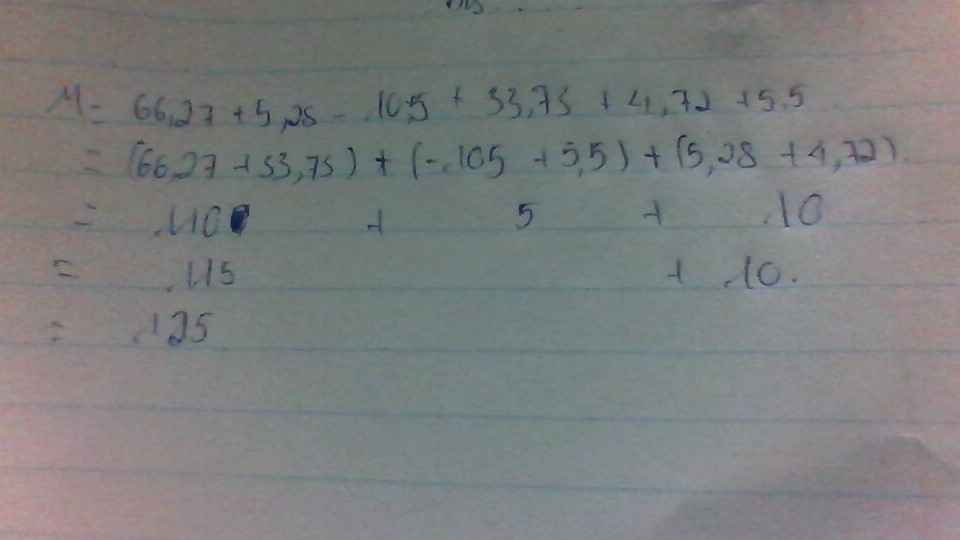 M = 66,27 + 5,28 - 10,5 + 33,73 + 4,72 + 5,5
= (66,27 + 33,73) + (-10,5 + 5,5) + (5,28 + 4,72)
= 110 + 5 + 10
= 115 + 10.
= 125